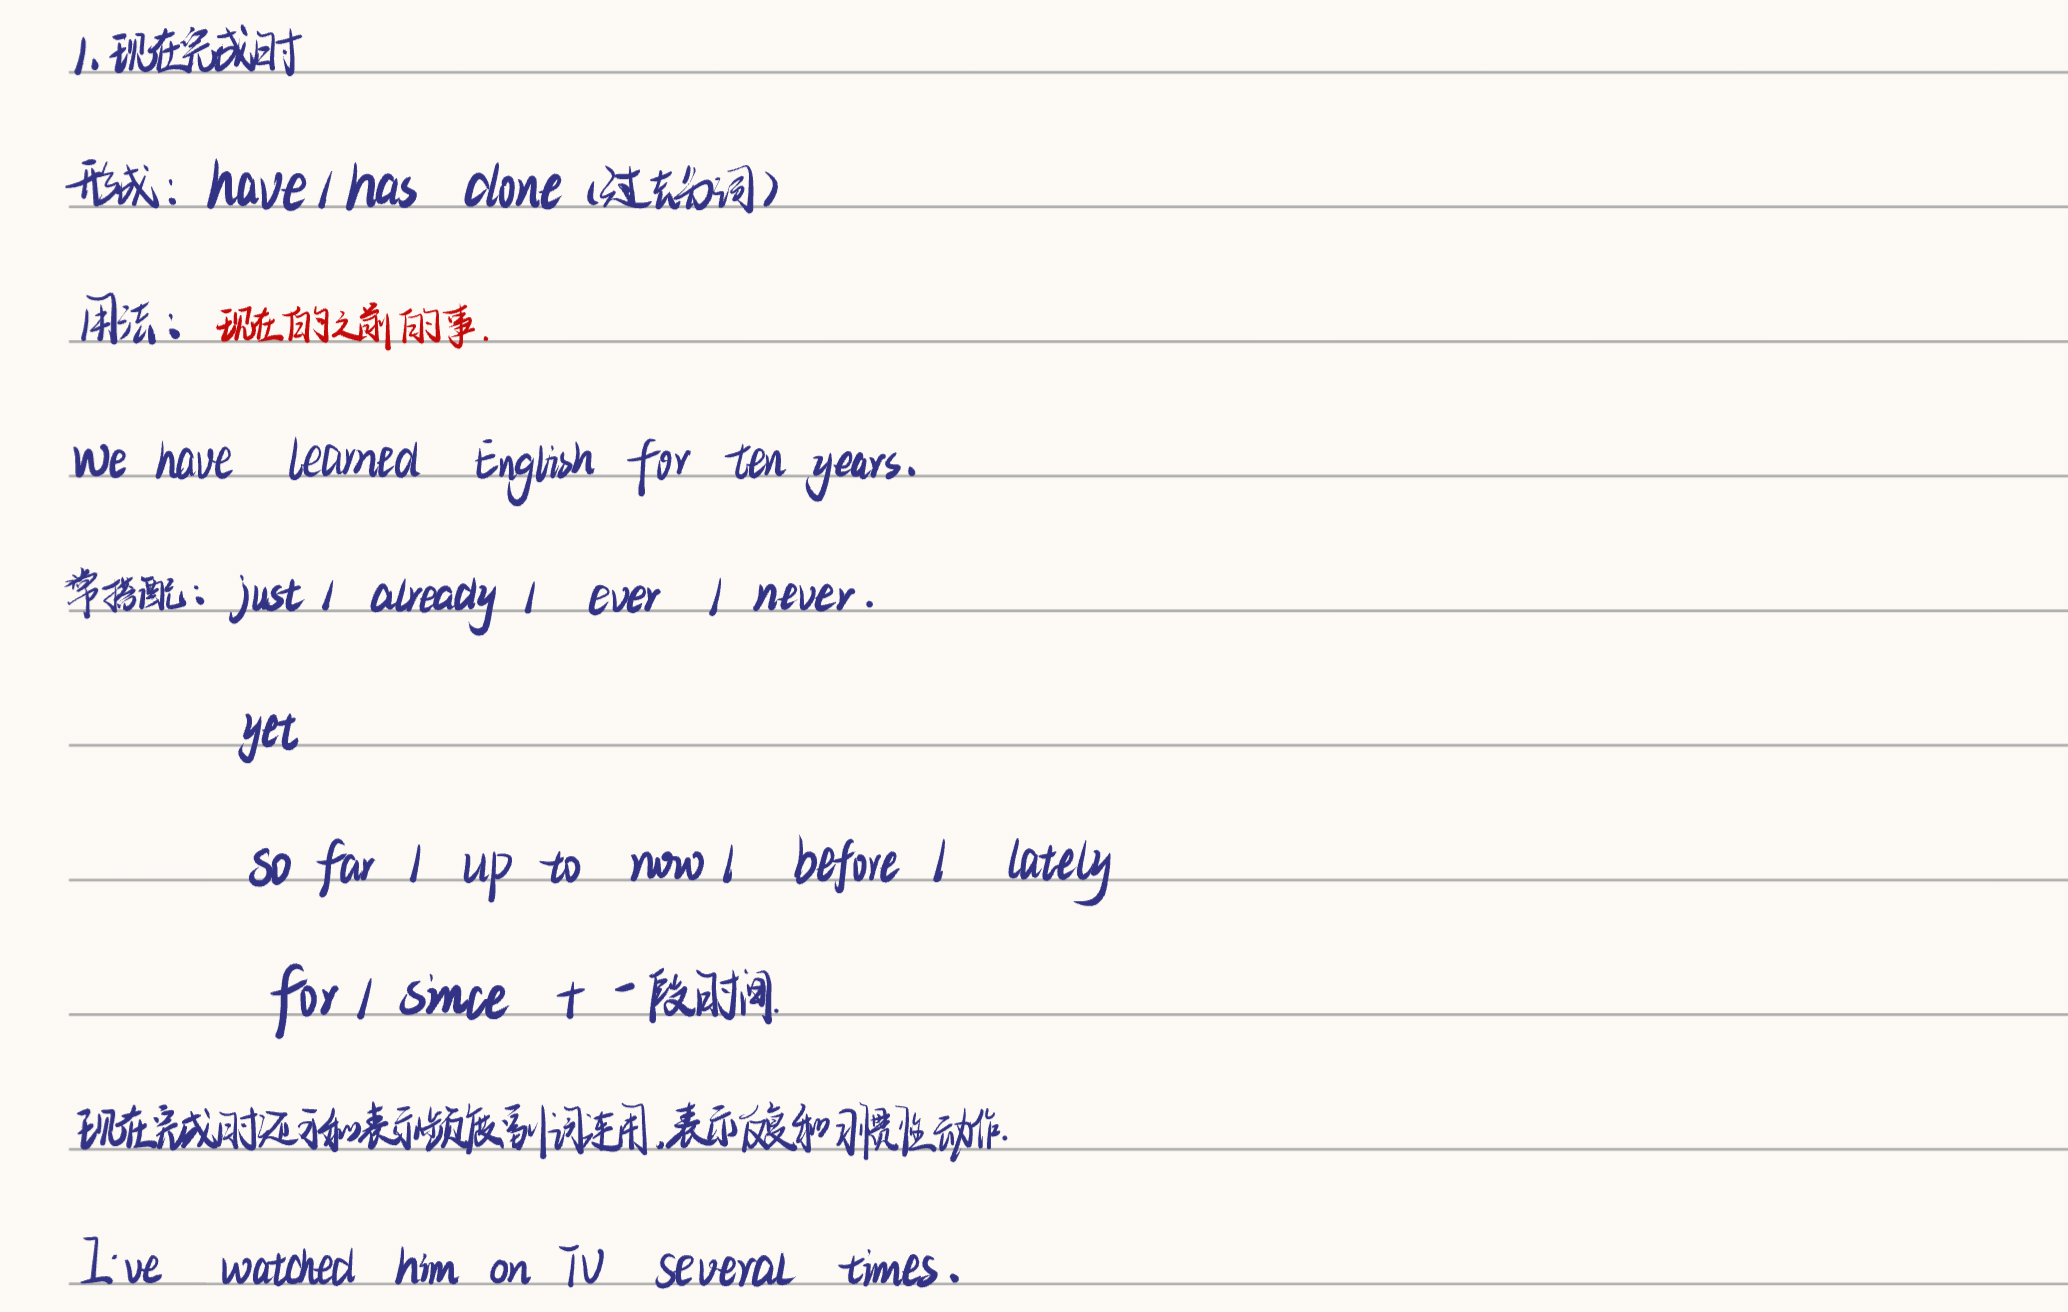 1. 现在完成时
形成: have / has done (过去分词)
用法: 现在的之前的事.
We have learned English for ten years.
常搭配: just / already / ever / never.
yet
so far / up to now / before / lately
for / since + 一段时间.
现在完成时还可和表示频度副词连用,表示反复和习惯性动作.
I've watched him on TV several times.